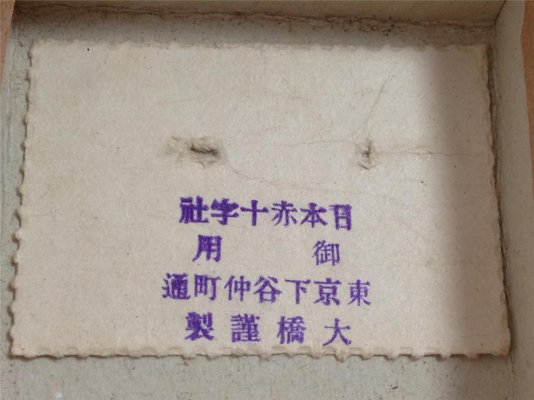 日本赤十字社
御用
東京下谷仲町通
大橋謹製